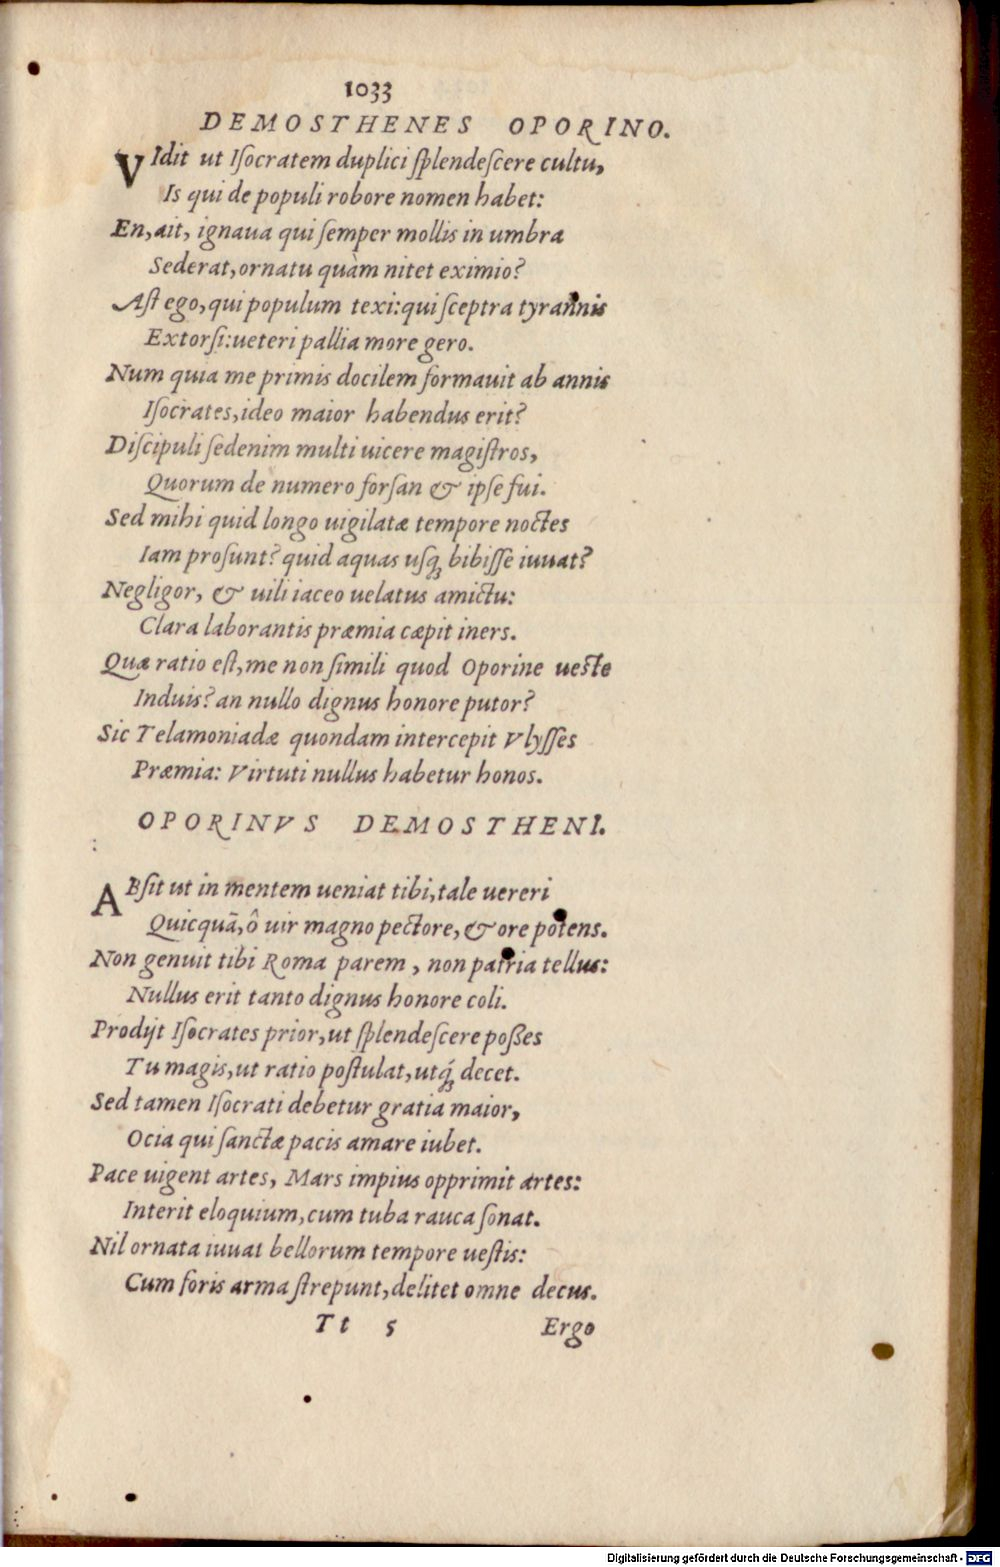 1033
DEMOSTHENES OPORINO.
VIdit ut Iſocratem duplici ſplendeſcere cultu,
Is qui de populi robore nomen habet:
En, ait, ignaua qui ſemper mollis in umbra
Sederat, ornatu quàm nitet eximio?
Aſt ego, qui populum texi: qui ſceptra tyrannis
Extorſi: ueteri pallia more gero.
Num quia me primis docilem formauit ab annis
Iſocrates, ideo maior habendus erit?
Diſcipuli ſedenim multi uicere magiſtros,
Quorum de numero forſan & ipſe fui.
Sed mihi quid longo uigilatæ tempore noctes
Iam proſunt? quid aquas uſqꝫ bibiſſe iuuat?
Negligor, & uili iaceo uelatus amictu:
Clara laborantis præmia cæpit iners.
Quæ ratio eſt, me non ſimili quod Oporine ueste
Induis? an nullo dignus honore putor?
Sic Telamoniadæ quondam intercepit Vlyſſes
Præmia: Virtuti nullus habetur honos.
OPORINVS DEMOSTHENI.
ABſit ut in mentem ueniat tibi, tale uereri
Quicquã, ô uir magno pectore, & ore potens.
Non genuit tibi Roma parem, non patria tellus:
Nullus erit tanto dignus honore coli.
Prodijt Iſocrates prior, ut ſplendeſcere poßes
Tu magis, ut ratio poſtulat, utq́ꝫ decet.
Sed tamen Iſocrati debetur gratia maior,
Ocia qui ſanctæ pacis amare iubet.
Pace uigent artes, Mars impius opprimit artes:
Interit eloquium, cum tuba rauca ſonat.
Nil ornata iuuat bellorum tempore ueſtis:
Cum foris arma ſtrepunt, delitet omne decus.
Tt 5 Ergo
Digitalisierung gefördert durch die Deutsche Forschungsgemeinschaft - DFG